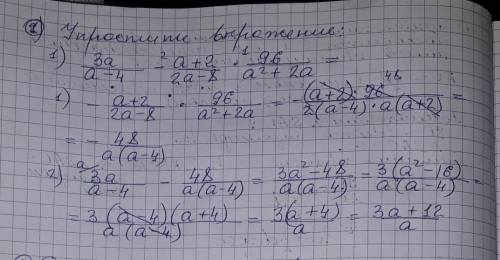 ① Упростите выражение:
1) 3a/(a-4) -² (a+2)/(2a-8) ·¹ 96/(a²+2a) =
1) - (a+2)/(2a-8) · 96/(a²+2a) = - ((a+2)·96 48)/(2(a-4)·a(a+2)) =
= - 48/(a(a-4))
2) a 3a/(a-4) - 48/(a(a-4)) = (3a²-48)/(a(a-4)) = 3(a²-16)/(a(a-4)) =
= 3(a-4)(a+4)/(a(a-4)) = 3(a+4)/a = (3a+12)/a